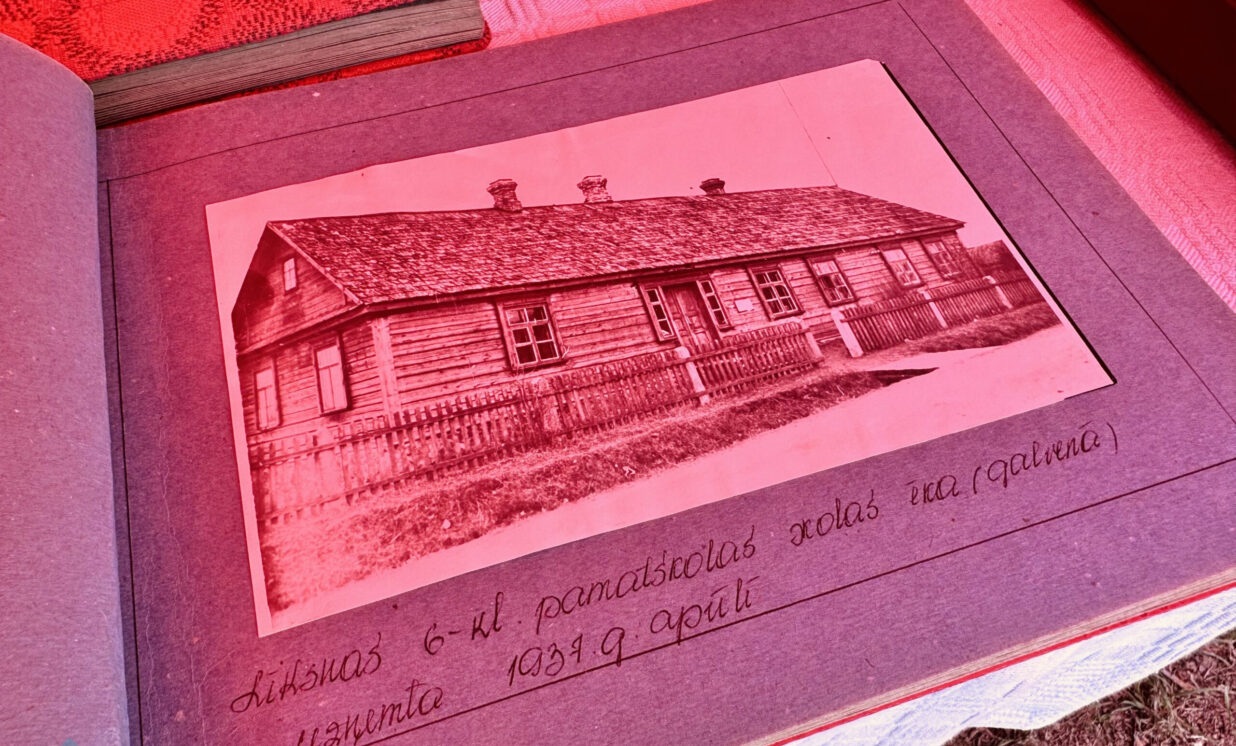 Līksnas 6-kl. pamatskolas skolas ēka (galvenā)
Uzņemta 1937.g. aprīlī